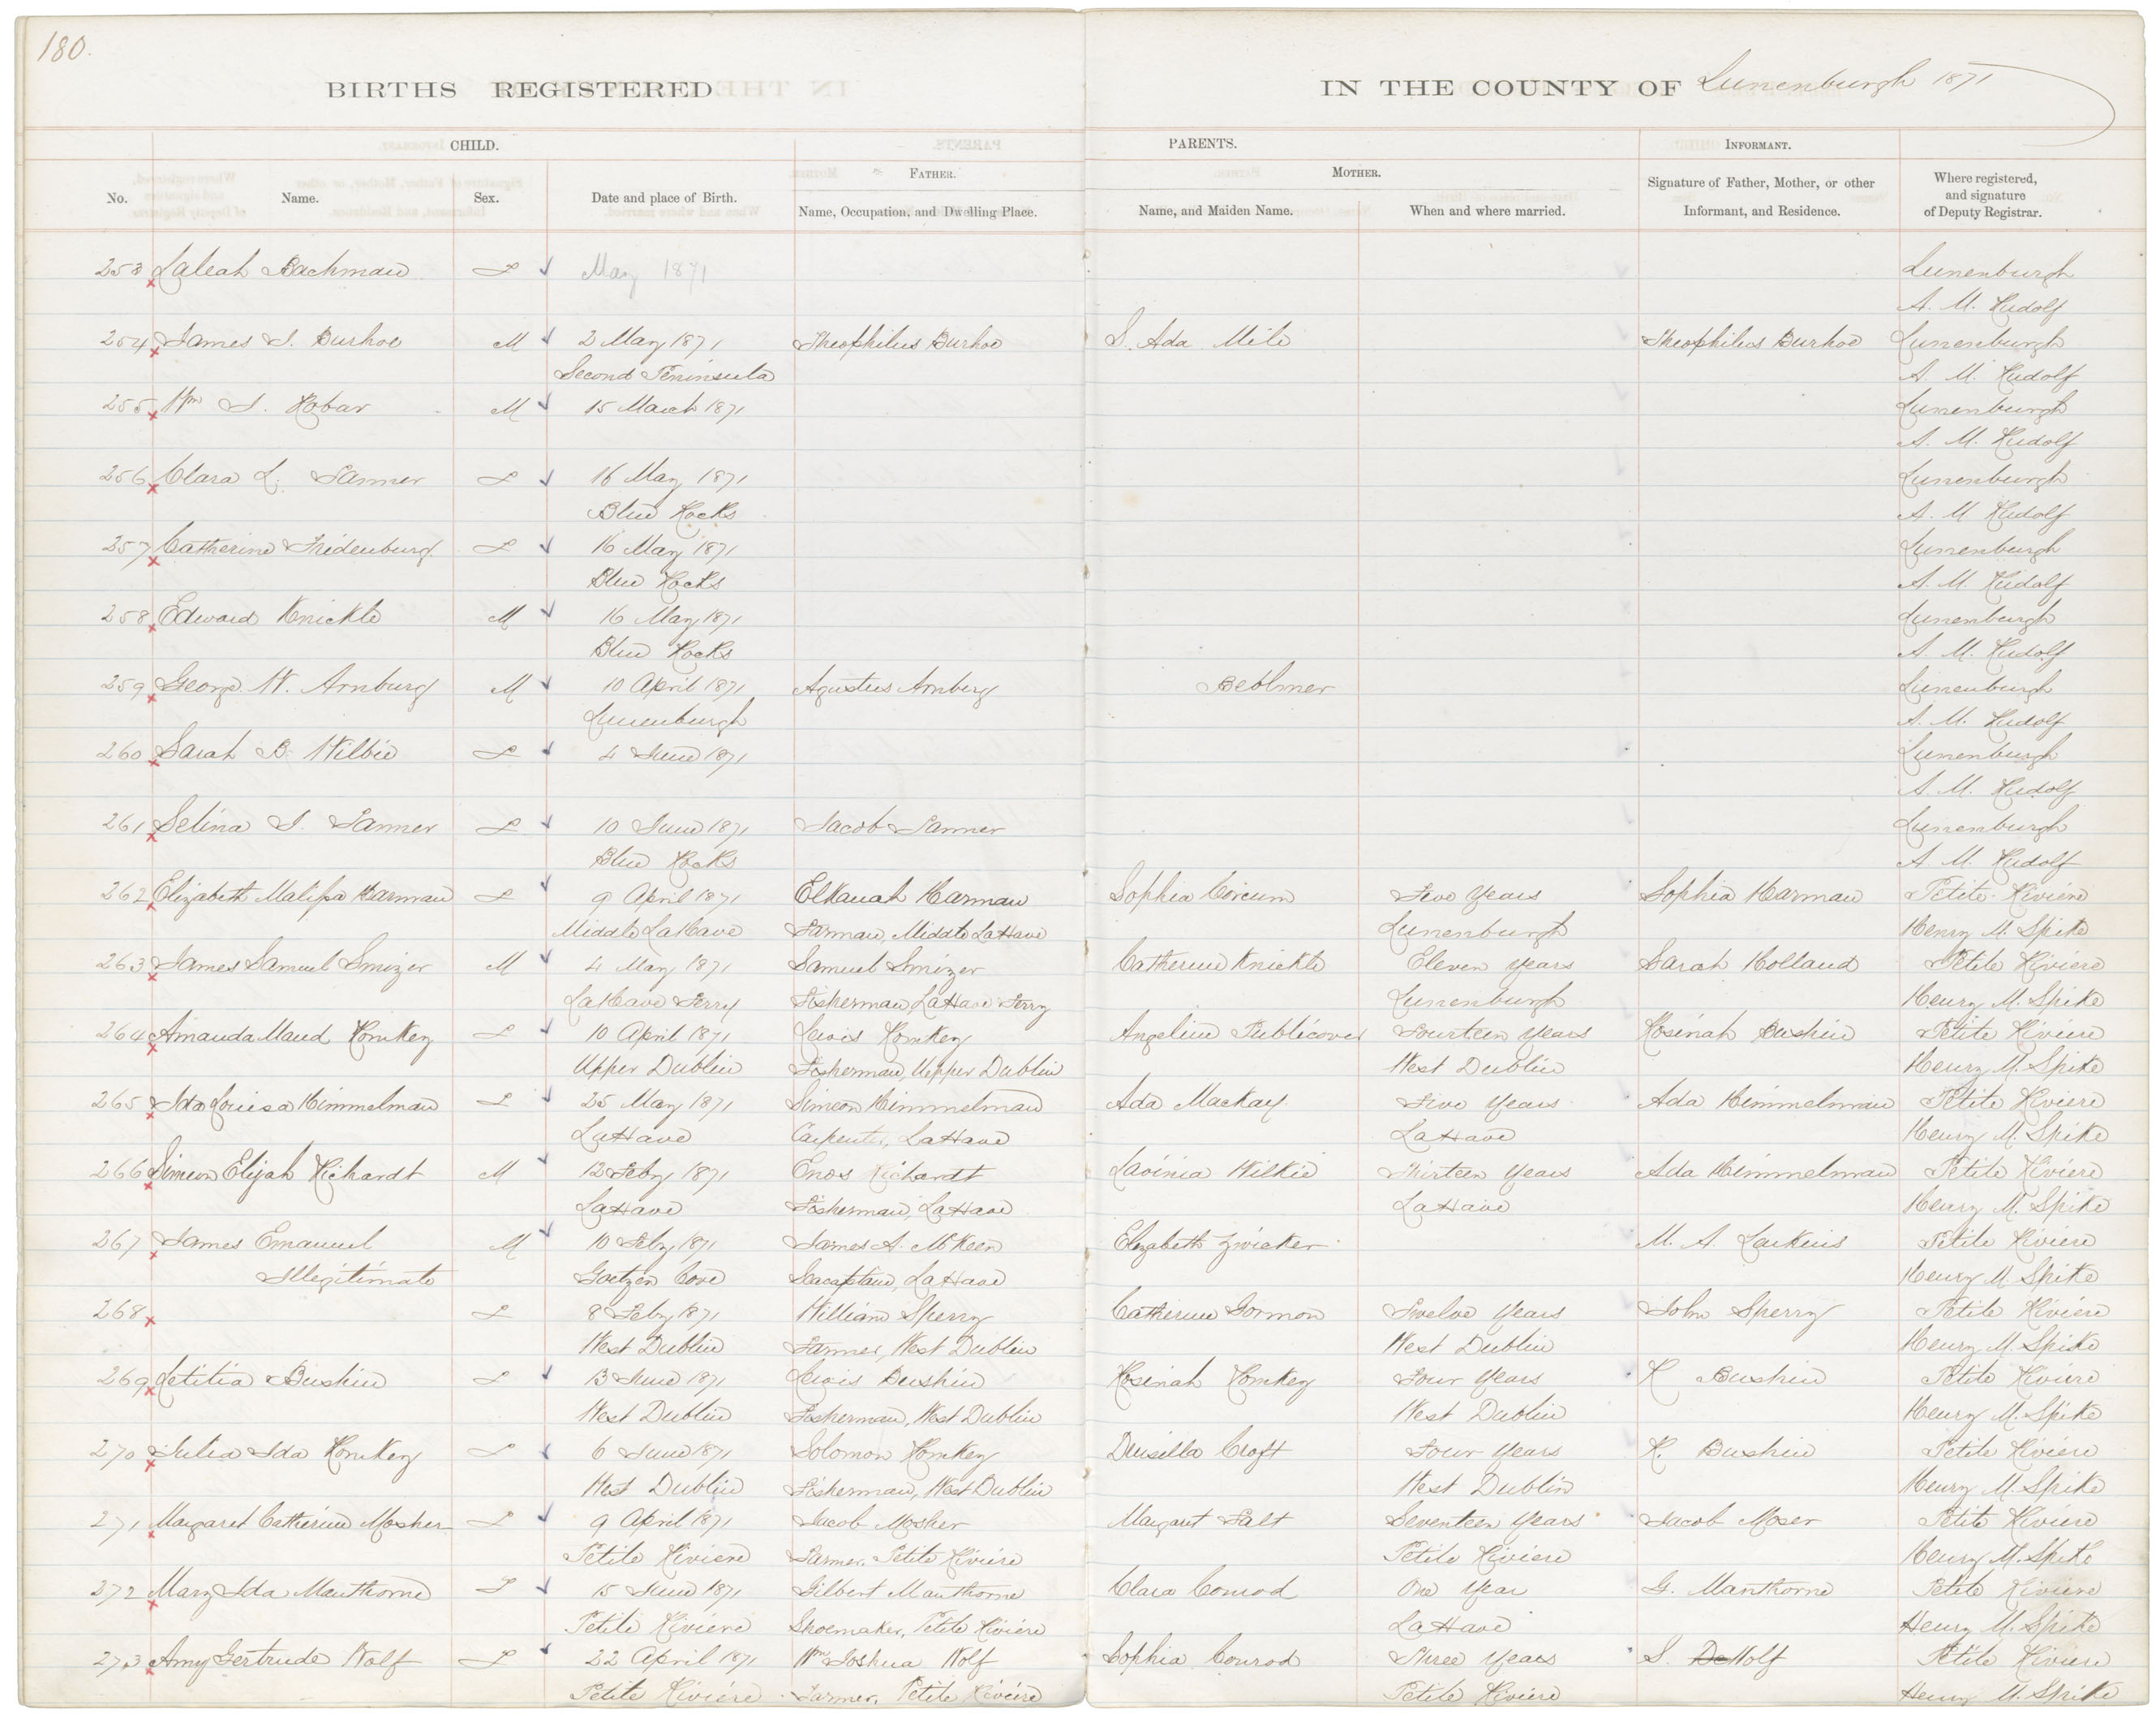 180.
BIRTHS REGISTERED IN THE COUNTY OF Lunenburgh 1871
CHILD. PARENTS. INFORMANT.
FATHER. MOTHER.
No. Name. Sex. Date and place of Birth. Name, Occupation, and Dwelling Place. Name, and Maiden Name. When and where married. Signature of Father, Mother, or other Informant, and Residence. Where registered, and signature of Deputy Registrar.
253 Laleah Bachman F May 1871 Lunenburgh
A. M. Rudolf
254 James S. Burhoe M 2 May 1871 Theophilus Burhoe S. Ada Mile Theophilus Burhoe Lunenburgh
Second Peninsula A. M. Rudolf
255 Wm S. Robar M 15 March 1871 Lunenburgh
A. M. Rudolf
256 Clara L. Tanner F 16 May 1871 Lunenburgh
Blue Rocks A. M Rudolf
257 Catherine Fridenburg F 16 May 1871 Lunenburgh
Blue Rocks A. M. Rudolf
258 Edward Knickle M 16 May 1871 Lunenburgh
Blue Rocks A. M. Rudolf
259 George W. Arnburg M 10 April 1871 Agustus Arnberg Beblmer Lunenburgh
Lunenburgh A. M. Rudolf
260 Sarah B. Wilbie F 4 June 1871 Lunenburgh
A. M. Rudolf
261 Selina S. Tanner F 10 June 1871 Jacob Tanner Lunenburgh
Blue Rocks A. M. Rudolf
262 Elizabeth Malissa Harman F 9 April 1871 Elkanah Harman Sophia Corcum Five Years Sophia Harman Petite Riviere
Middle LaHave Farman, Middle LaHave Lunenburgh Henry M. Spike
263 James Samuel Smizer M 4 May 1871 Samuel Smizer Catherine Knickle Eleven Years Sarah Holland Petite Riviere
LaHave Ferry Fisherman, LaHave Ferry Lunenburgh Henry M. Spike
264 Amanda Maud Romkey F 10 April 1871 Lewis Romkey Angeline Publicover Fourteen Years Rosinah Bushin Petite Riviere
Upper Dublin Fisherman, Uepper Dublin West Dublin Henry M. Spike
265 Ida Louisa Himmelman F 25 May 1871 Simeon Himmelman Ada Mackay Five Years Ada Himmelman Petite Riviere
LaHave Carpenter, LaHave LaHave Henry M. Spike
266 Simeon Elijah Richardt M 12 Feby 1871 Enos Richardt Lavinia Wilkie Thirteen Years Ada Himmelman Petite Riviere
LaHave Fisherman, LaHave LaHave Henry M. Spike
267 James Emanuel M 10 Feby 1871 James A. McKeen Elizabeth Zwicker M. A. Larkins Petite Riviere
Illegitimate Goetzen Cove Seacaptain, LaHave Henry M. Spike
268 F 8 Feby 1871 William Sperry Catherine Gormon Twelve Years John Sperry Petite Riviere
West Dublin Farmer, West Dublin West Dublin Henry M. Spike
269 Letitia Bushin F 13 June 1871 Lewis Bushin Rosinah Romkey Four Years R Bushin Petite Riviere
West Dublin Fisherman, West Dublin West Dublin Henry M. Spike
270 Julia Ida Romkey F 6 June 1871 Solomon Romkey Drusilla Croft Four Years R. Bushin Petite Riviere
West Dublin Fisherman, West Dublin West Dublin Henry M. Spike
271 Margaret Catherine Mosher F 9 April 1871 Jacob Mosher Margaret Falt Seventeen Years Jacob Moser Petite Riviere
Petite Riviere Farmer, Petite Riviere Petite Riviere Henry M. Spike
272 Mary Ida Manthorne F 15 June 1871 Gilbert Manthorne Clara Conrod One Year G. Manthorne Petite Riviere
Petite Riviere Shoemaker, Petite Riviere LaHave Henry M. Spike
273 Amy Gertrude Wolf F 22 April 1871 Wm Joshua Wolf Sophia Conrod Three Years S. DeWolf Petite Riviere
Petite Riviere Farmer, Petite Riviere Petite Riviere Henry M. Spike